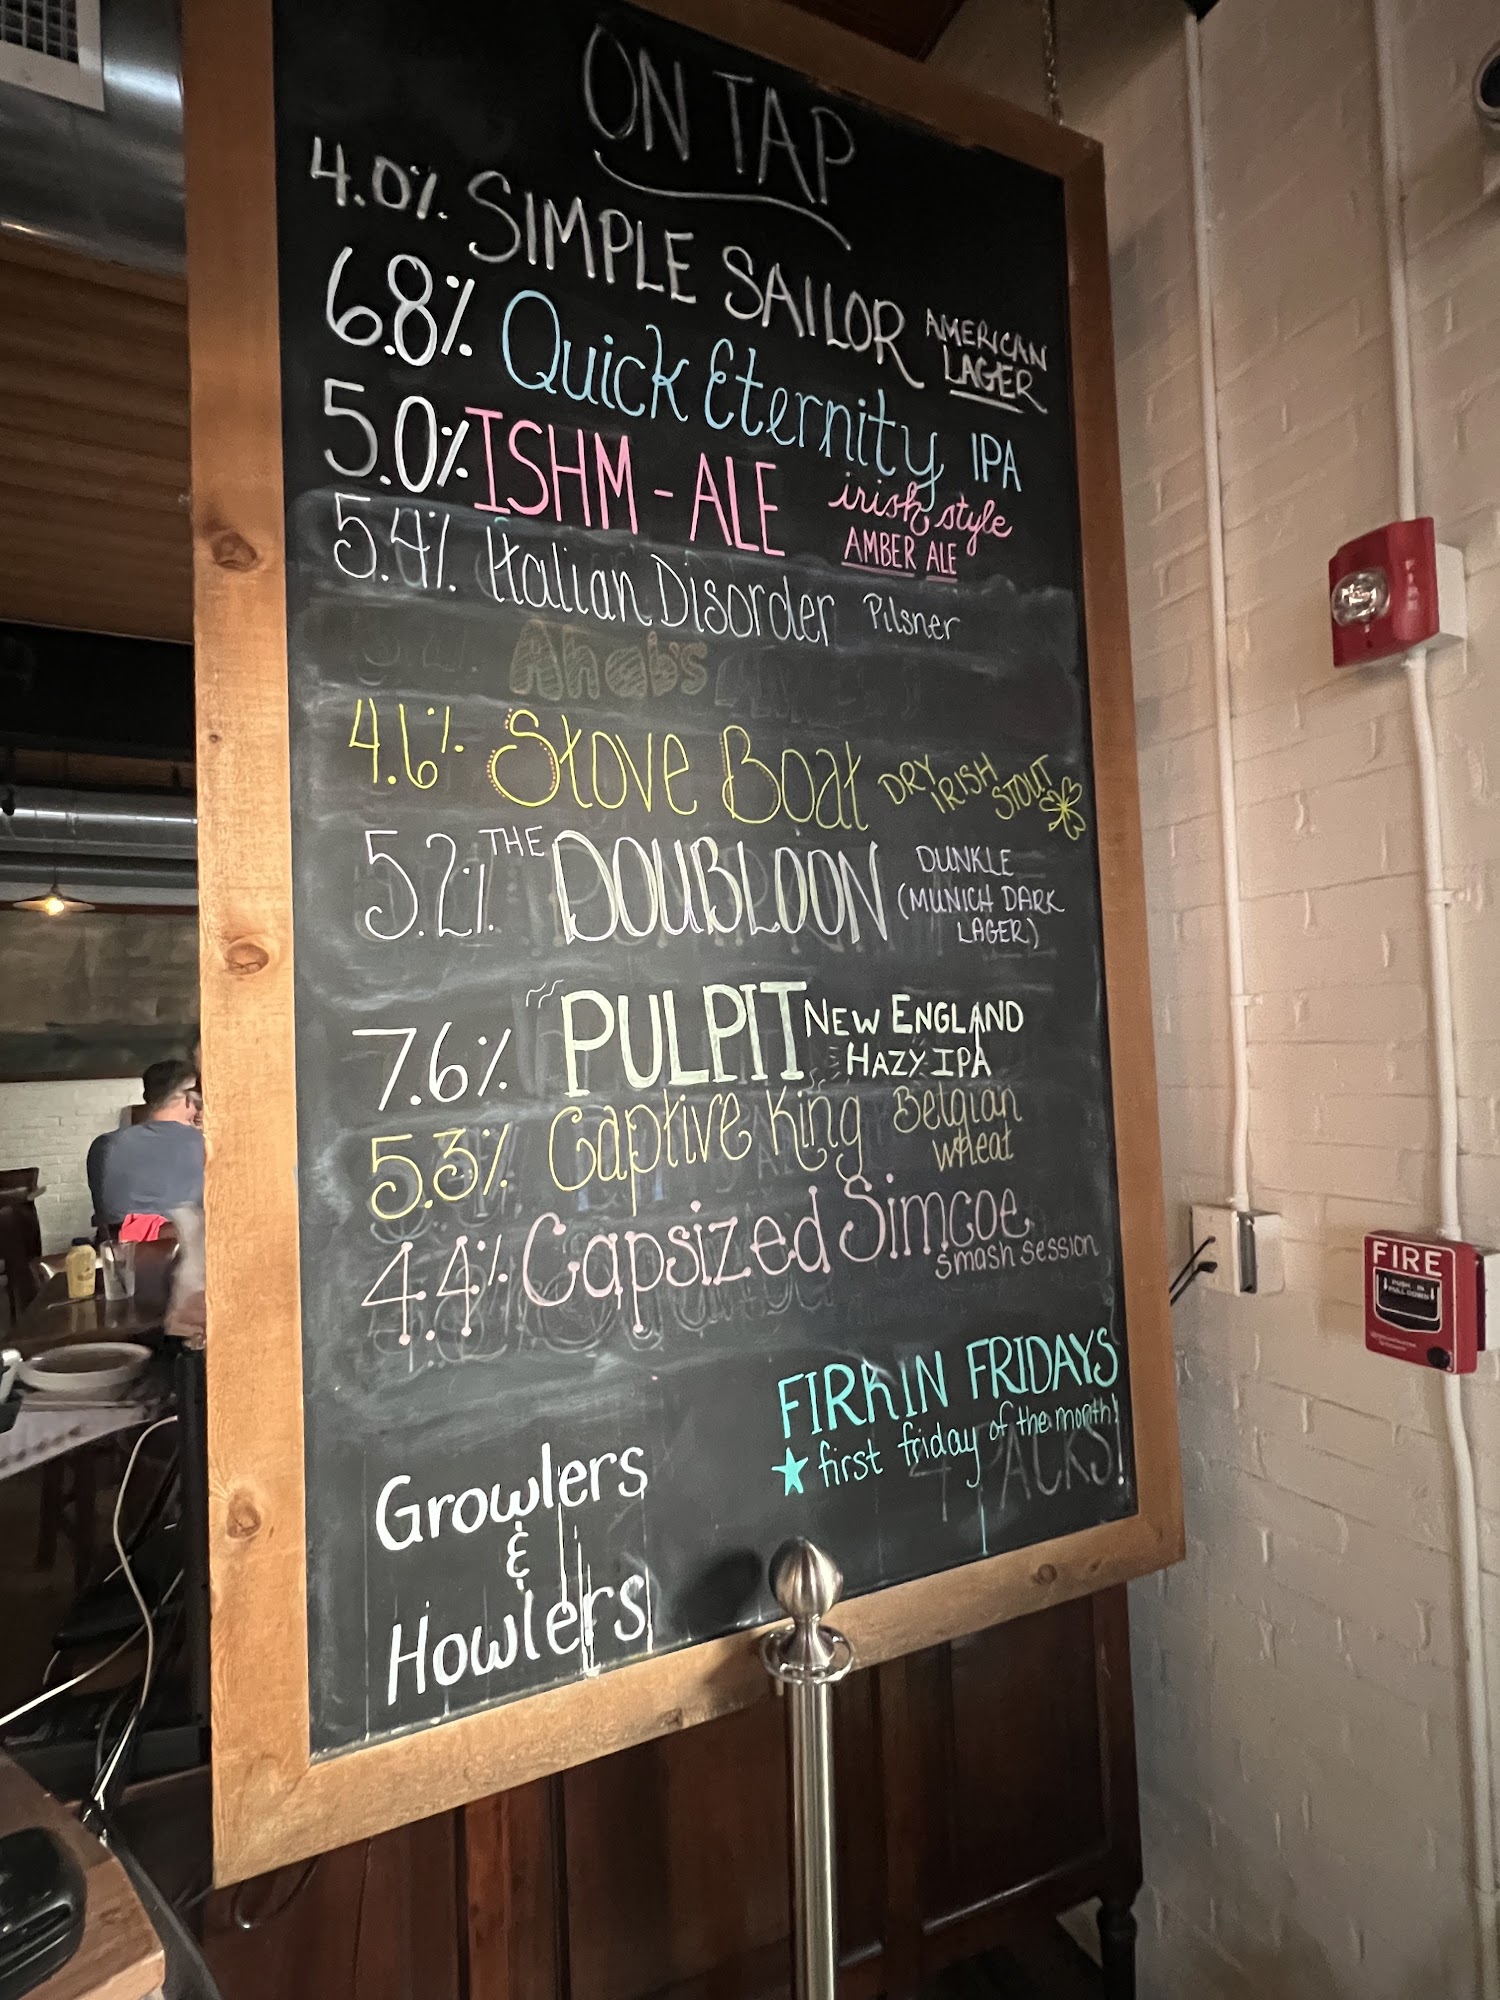 ON TAP
4.0% SIMPLE SAILOR AMERICAN LAGER
6.8% Quick Eternity IPA
5.0% ISHM-ALE irish style AMBER ALE
5.4% Italian Disorder Pilsner
5.2% Ahab's
4.6% Stove Boat DRY IRISH STOUT
5.2% THE DOUBLOON DUNKLE (MUNICH DARK LAGER)
7.6% PULPIT NEW ENGLAND HAZY IPA
5.3% Captive King Belgian wheat
4.4% Capsized Simcoe smash session
FIRKIN FRIDAYS
first friday of the month!
4 PACKS!
Growlers
&
Howlers
FIRE
FIRE
PUSH IN
PULL DOWN